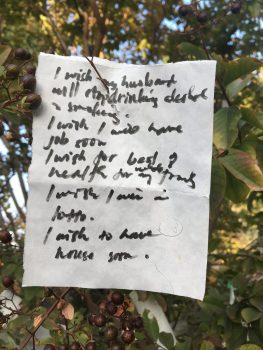 I wish my husband
will stop drinking alcohol
& smoking.
I wish I will have
job soon
I wish for best of
health for my family
I wish I win in
lotto.
I wish to have
house soon.